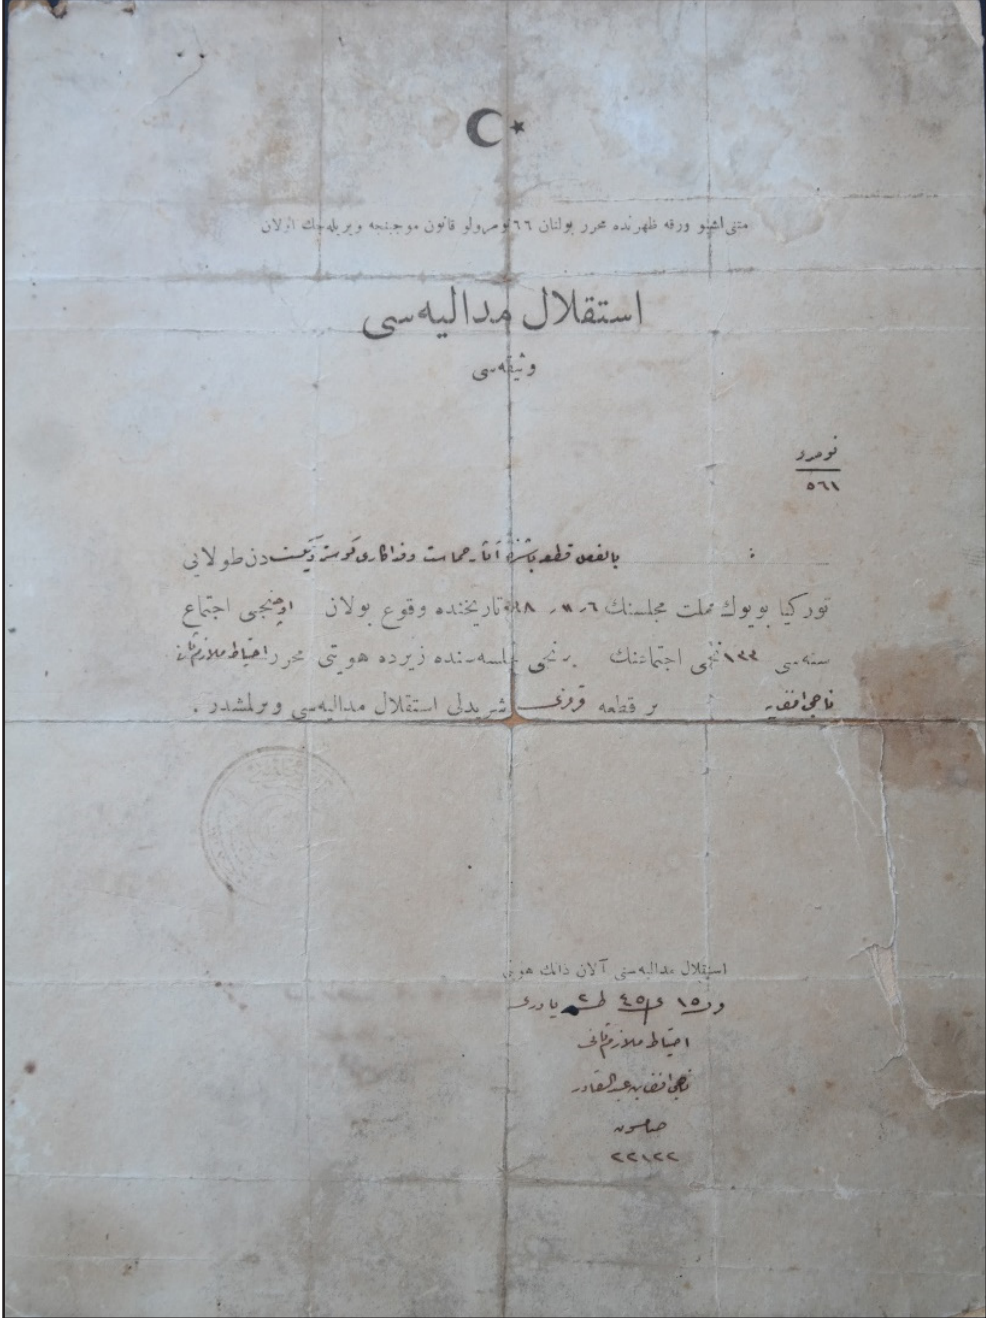 متنی اشبو ورقه ظهرنده محرر بولنان ٦٦ نومرولو قانون موجبنجه ویریله‌جك اولان
استقلال مدالیه‌سی
وثیقه‌سی
نومرو
٥٦١
بالفعل قطعه باشنده آثار حماست وفداکاری کوستردیکندن طولایی
تورکیا بویوك ملت مجلسنك تاریخنده وقوع بولان اوچنجی اجتماع
سنه‌سی ١٣٣ نجی اجتماعنك برنجی جلسه‌سنده زیرده هویتی محرر احتیاط ملازم ثانی
ناجی افندی‌یه بر قطعه شریدلی استقلال مدالیه‌سی ویرلمشدر .
استقلال مدالیه‌سی آلان ذاتك هویتی
یاوری
احتیاط ملازم ثانی
ناجی افندی بن عبدالقادر
صامسون
٢٢١٢٢